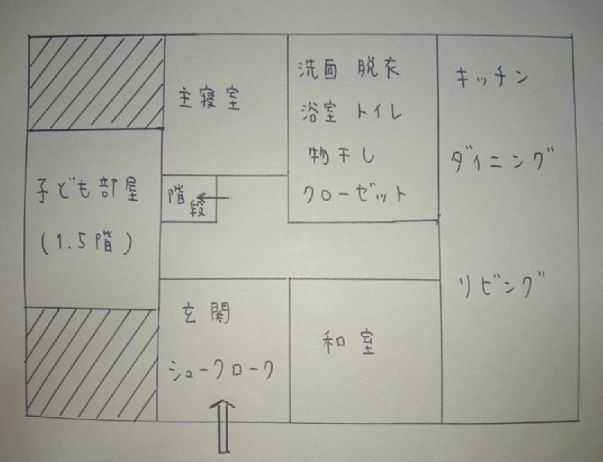 主寝室
洗面 脱衣
浴室 トイレ
物干し
クローゼット
キッチン
ダイニング
リビング
子ども部屋
(1.5階)
階段
玄関
シュークローク
和室